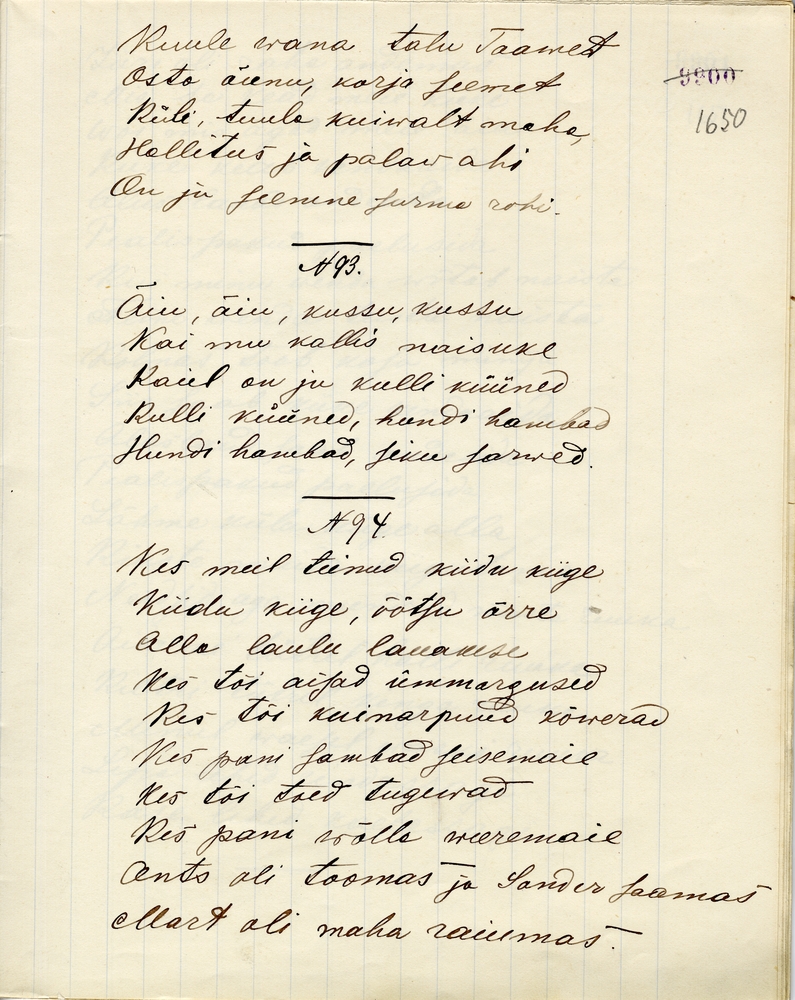 Kuule wana talu Taawet
Osta äienu, korja seemet
Küli, tuula kuiwalt maha,
Hallitus ja palaw ahi
On ju seenene surma rohi.
9900
1650
N 93.
Äiu, äiu, kussu, kussu
Kai mu kallis naisuke
Kaiel on ju kulli küüned
Kulli küüned, hundi hambad
Hundi hambad, siku sarwed.
N 94.
Kes meil teinud kiidu kiige
Kiidu kiige, õõtsu õrre
Alla laulu lauakese
Kes tõi aisad ümmargused
Kes tõi kuinarpuud kõwerad
Kes pani sambad seisemaie
Kes tõi toed tugewad
Kes pani wõlla weeremaie
Ants oli toomas ja Sander saamas
Mart oli maha raiumas.